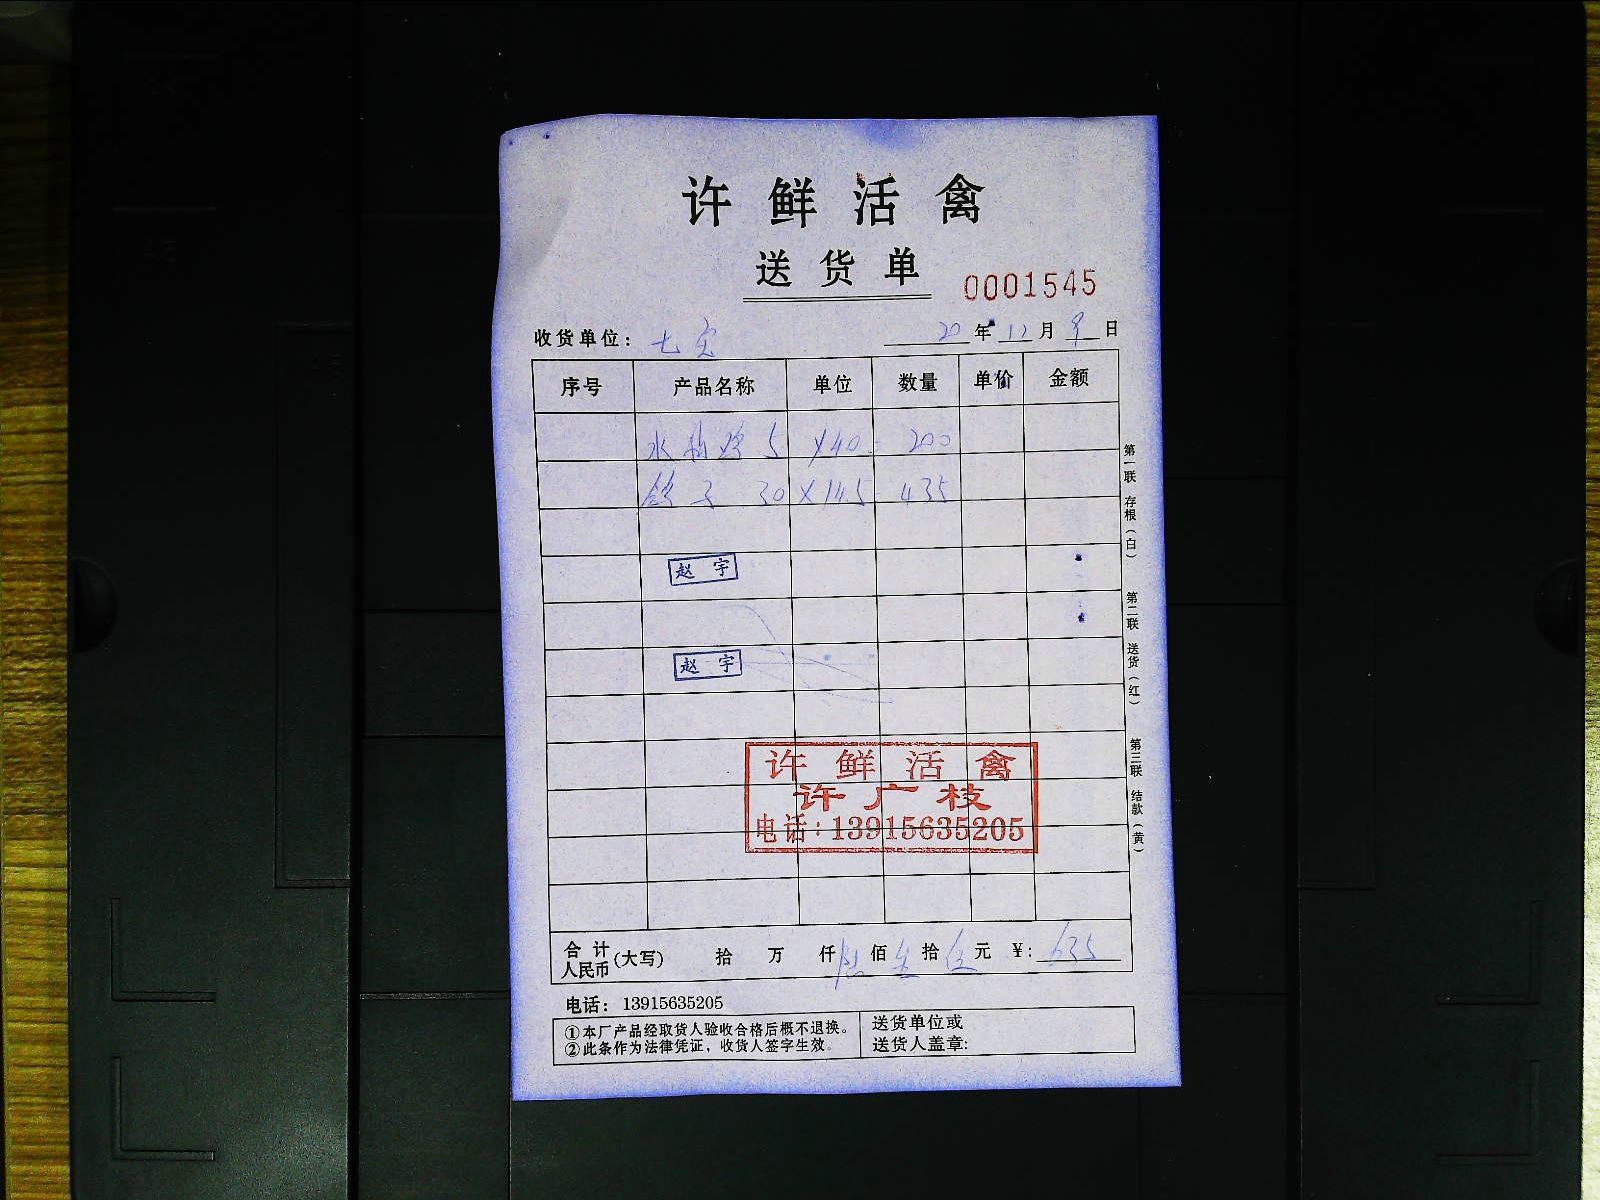 许鲜活禽
送货单
0001545
收货单位： 七宝 20年12月9日
序号 产品名称 单位 数量 单价 金额
水 鸡 5 ×40 200
鸽子 30 ×14.5 435
赵宇
赵宇
许鲜活禽
许广枝
电话：13915635205
合计人民币(大写) 拾 万 仟陆佰叁拾伍元 ¥：635
电话： 13915635205
①本厂产品经取货人验收合格后概不退换。
②此条作为法律凭证，收货人签字生效。
送货单位或
送货人盖章:
第一联 存根（白）
第二联 送货（红）
第三联 结款（黄）